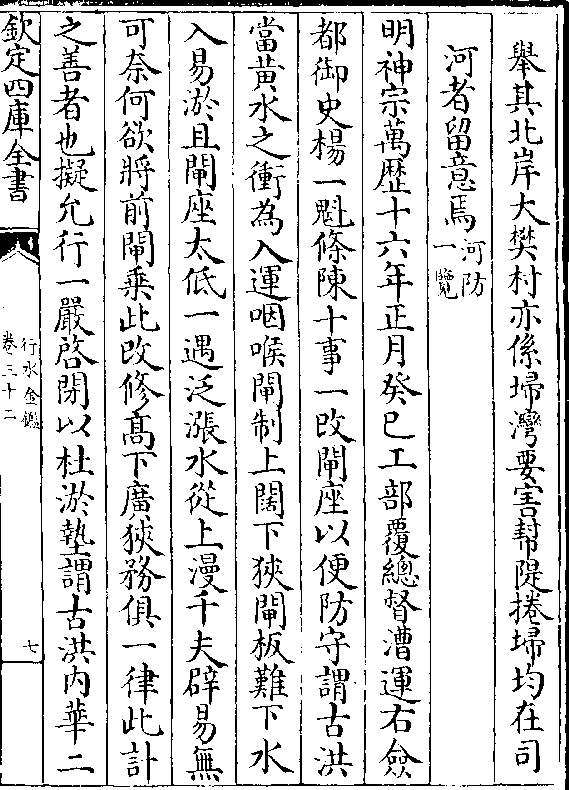 舉其北岸大樊村亦係埽灣要害幫隄捲埽均在司
河者留意焉河防一覽
明神宗萬歷十六年正月癸巳工部覆總督漕運右僉
都御史楊一魁條陳十事一改閘座以便防守謂古洪
當黄水之衝為入運咽喉閘制上闊下狹閘板難下水
入易淤且閘座太低一遇泛漲水從上漫千夫辟易無
可奈何欲將前閘乗此改修髙下廣狹務俱一律此計
之善者也擬允行一嚴啓閉以杜淤墊謂古洪内華二
欽定四庫全書
行水金鑑
卷三十二
七